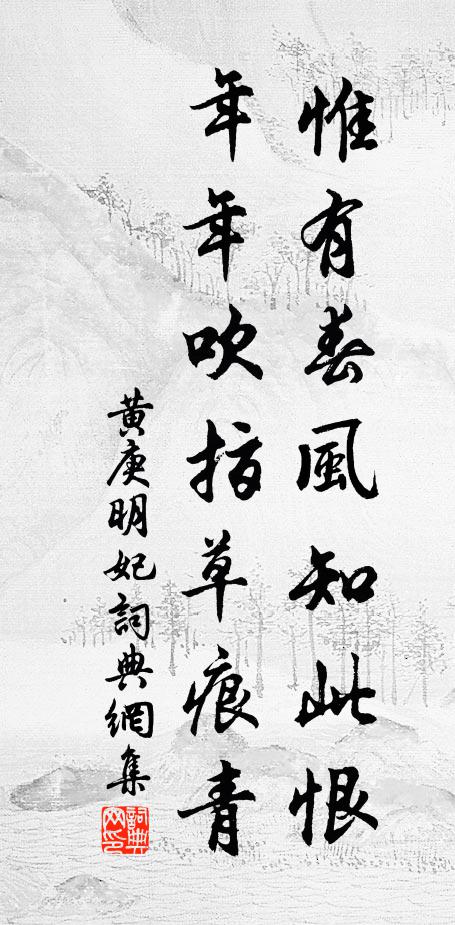 惟有春風知此恨
年年吹指草痕青
黄庚明妃詞典網集
詞典网印